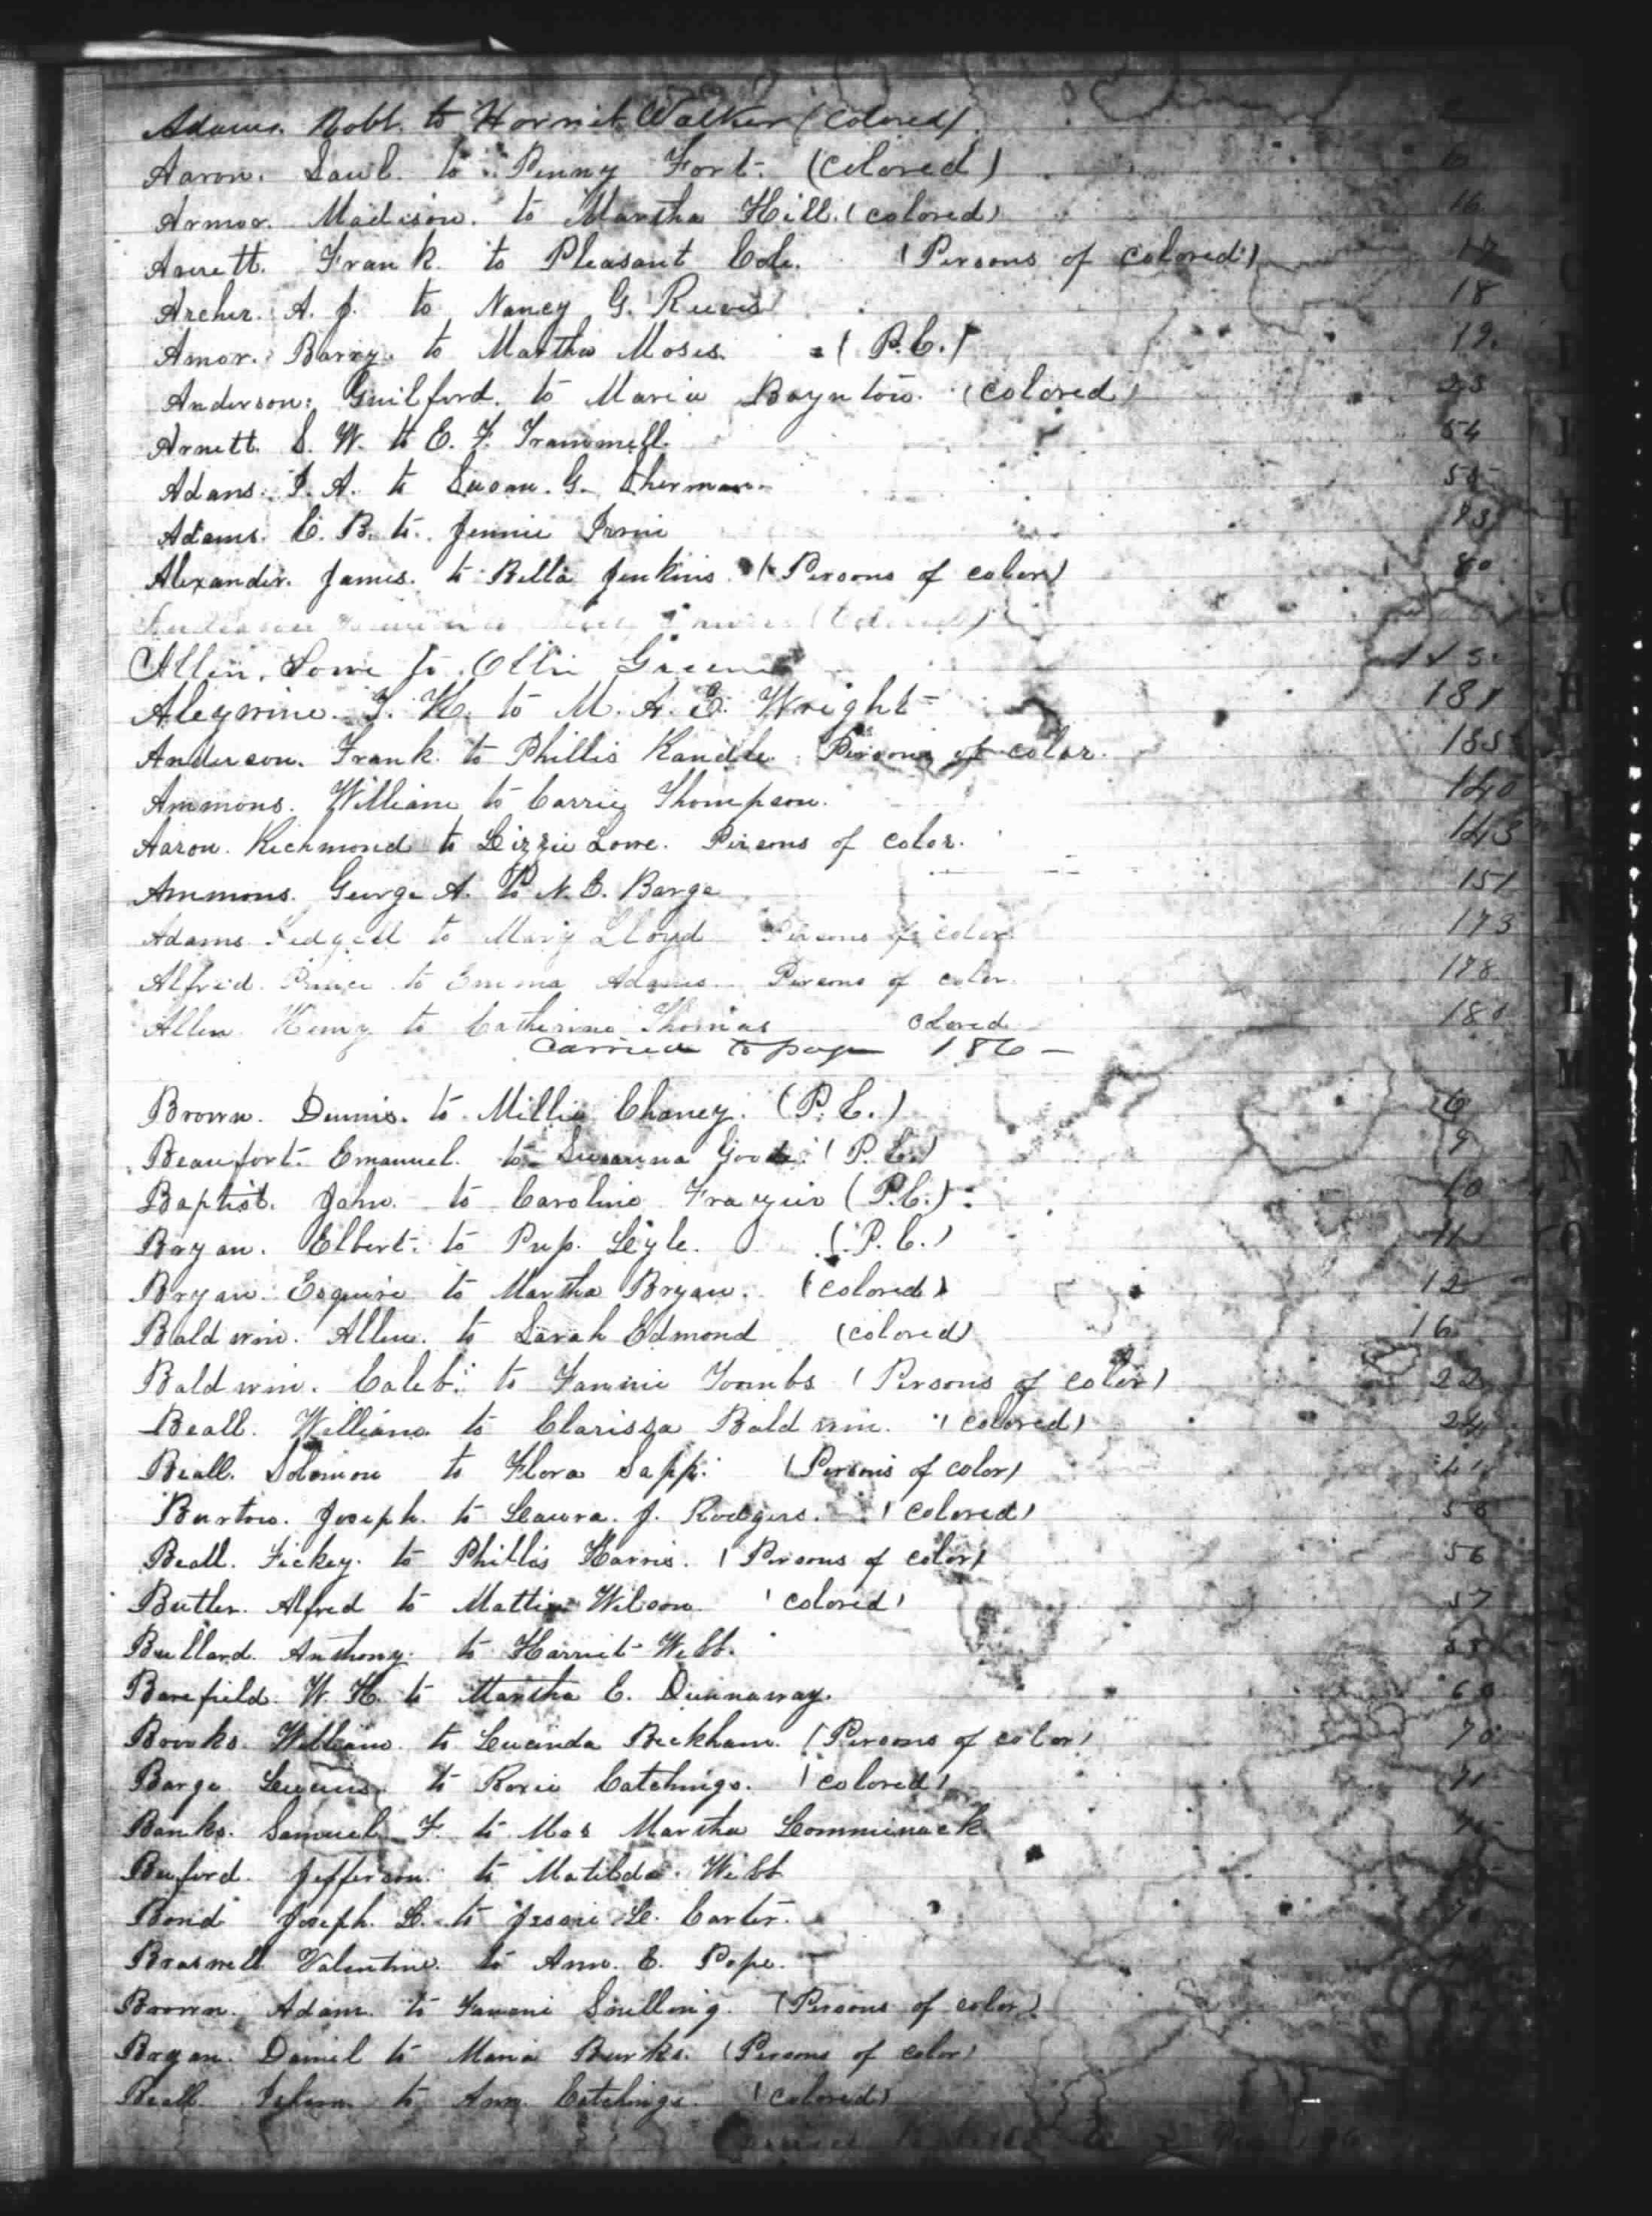 Adams. Robt. to Harriet Walker (Colored)
Aaron. Saul. to Penny Fort. (Colored)
Armor. Madison. to Martha Hill. (colored) 16
Averett. Frank. to Pleasant Cole. (Persons of colored) 17
Archer. A. J. to Nancy G. Reeves 18
Amor. Barry. to Martha Moses. (P.C.) 19.
Anderson. Guilford. to Maria Boynton. (colored) 23
Arnett. S. W. to E. F. Trammell. 54
Adams. J. A. to Susan. G. Sherman. 55
Adams. C. B. to. Jennie Irvin
Alexander. James. to Bella Jenkins. (Persons of color) 80
(Colored)
Allen. Lowe to Ollie Greene
Aleywine. J. H. to M. A. E. Wright 181
Anderson. Frank. to Phillis Randle. Persons of color. 185
Ammons. William to Carrie Thompson. 140
Aaron. Richmond to Lizzie Lowe. Persons of color. 143
Ammons. George A. to N. E. Barge 151
Adams to Mary Lloyd Persons of color 173
Alfred. Prince to Emma Adams. Persons of color. 178
Allen Henry to Catherine Thomas colored 180
Carried to page 186
Brown. Dennis. to Millie Chaney. (P. C.) 6
Beaufort. Emanuel. to Susanna Goode. (P. C.) 9
Baptist. John. to Caroline Frazier (P.C.) 10
Bryan. Elbert. to Pup. Lyle. (P. C.) 11
Bryan. Esquire to Martha Bryan. (colored) 12
Baldwin. Allen. to Sarah Edmond (colored) 16
Baldwin. Caleb. to Fannie Toombs (Persons of color) 22
Beall. William to Clarissa Baldwin. (colored) 24
Beall. Solomon to Flora Sapp. (Persons of color)
Burton. Joseph. to Laura. J. Rodgers. (colored)
Beall. Fickey. to Phillis Harris. (Persons of color) 56
Butler. Alfred to Mattie Wilson. (colored) 57
Bullard. Anthony. to Harriet Webb.
Barefield. W. H. to Martha E. Dunnaway. 60
Brooks. William. to Lucinda Beckham. (Persons of color) 70
Barge to Roxie Catchings. (colored) 71
Banks. Samuel F. to Mrs Martha Lomminack
Buford. Jefferson. to Matilda Webb
Bond Joseph. L. to Jessie L. Carter.
Braswell Valentine. to Ann. E. Pope.
Brown. Adam. to Fannie Snelling. (Persons of color)
Bryan. Daniel to Maria Burks. (Persons of color)
Beall. Isham to Ann Catchings. (colored)